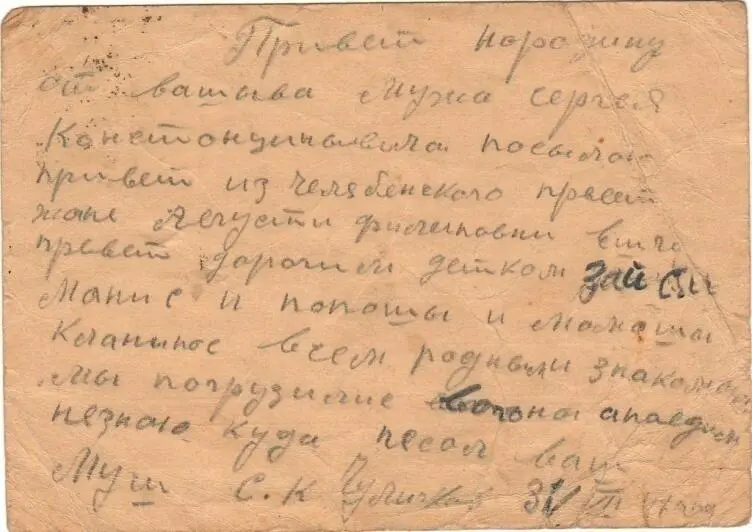 Привет народину
от вашыва Мужа Сергея
Констонциновича посылаю
привет из Челябенского превет
жоне Августи филиповни
превет дорогим деткам Зай
Мание и попошы и момошы
Кланиюс всем родным знакомым
Мы погрузилис вогоны апаедим
незнаю куда песал ваш
Муш С.К 31/